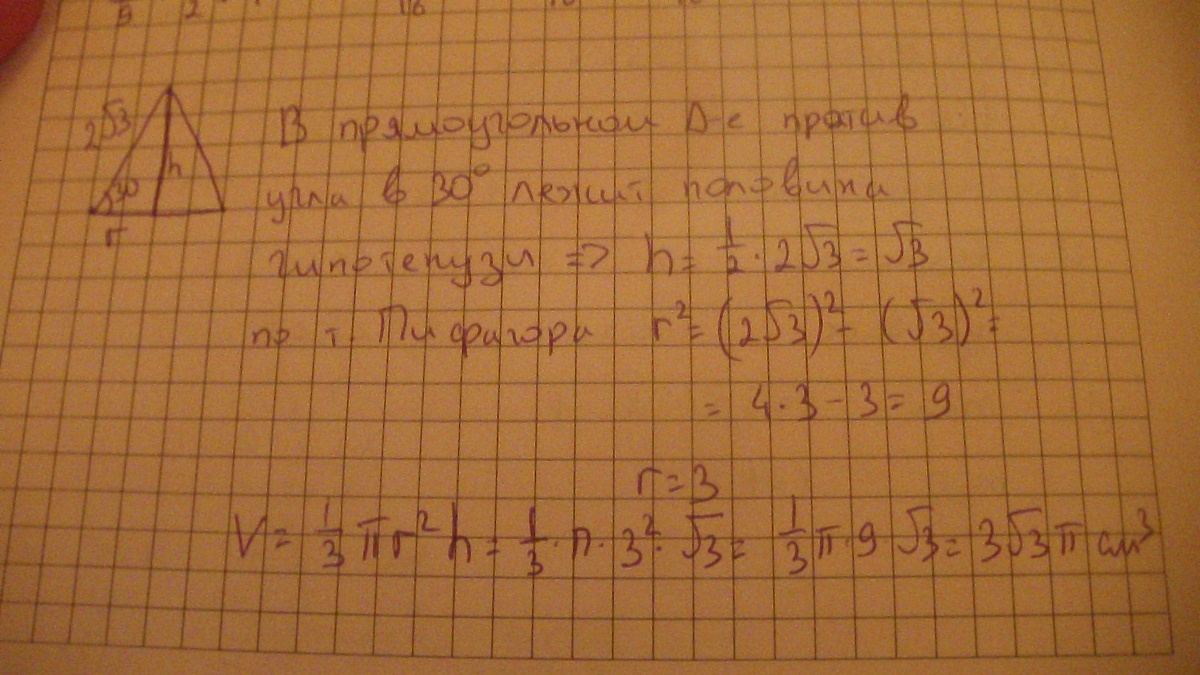 5 2 16
2√3 В прямоугольном Δ-е против
30 h угла в 30° лежит половина
r
гипотенузы => h = 1/2 · 2√3 = √3
по т. Пифагора r² = (2√3)² - (√3)² =
= 4·3 - 3 = 9
r = 3
V = 1/3 π r² h = 1/3 · π · 3² · √3 = 1/3 π · 9 √3 = 3√3 π см³